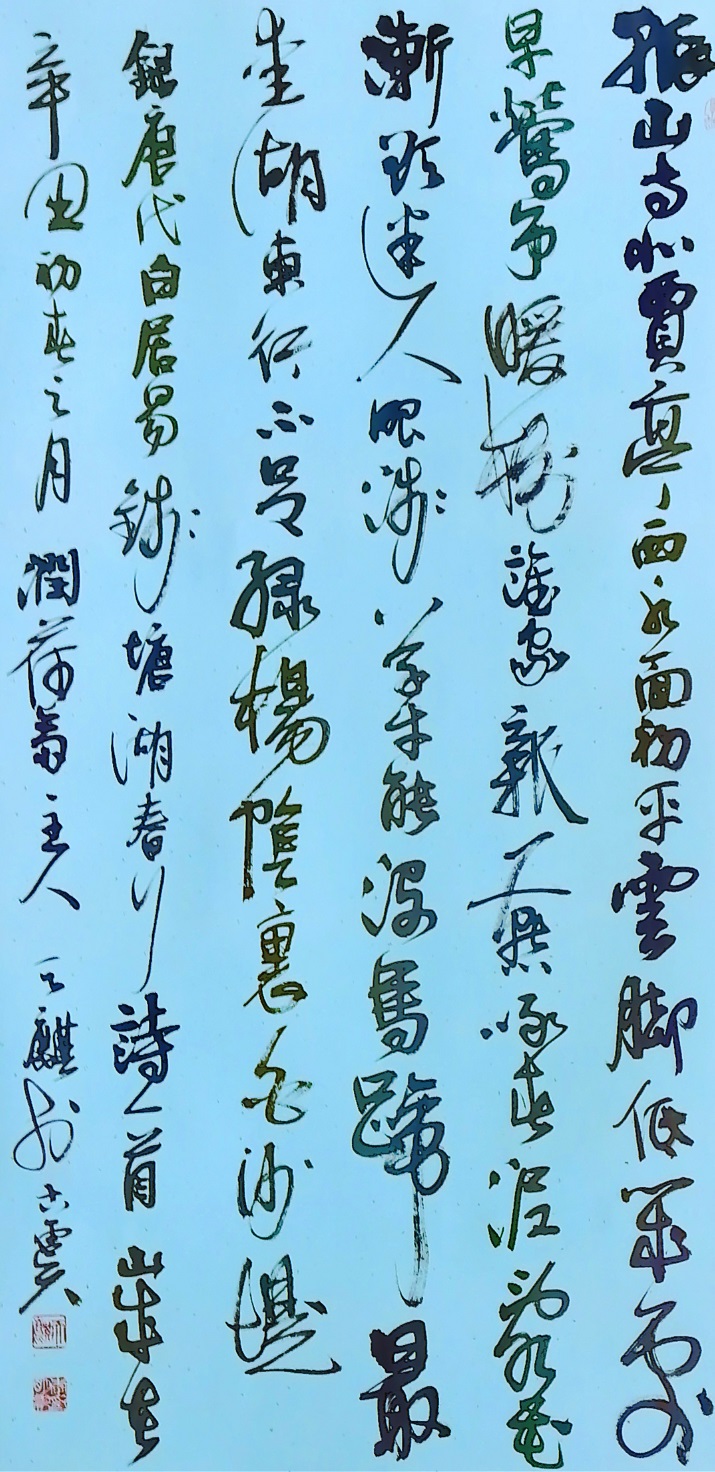 孤山寺北賈亭西水面初平雲腳低幾處
早鶯爭暖樹誰家新燕啄春泥亂花
漸欲迷人眼淺草才能沒馬蹄最
愛湖東行不足綠楊陰裏白沙堤
錄唐代白居易錢塘湖春行詩一首歲在
辛丑初春之月潤荷齋主人天麒於古虞